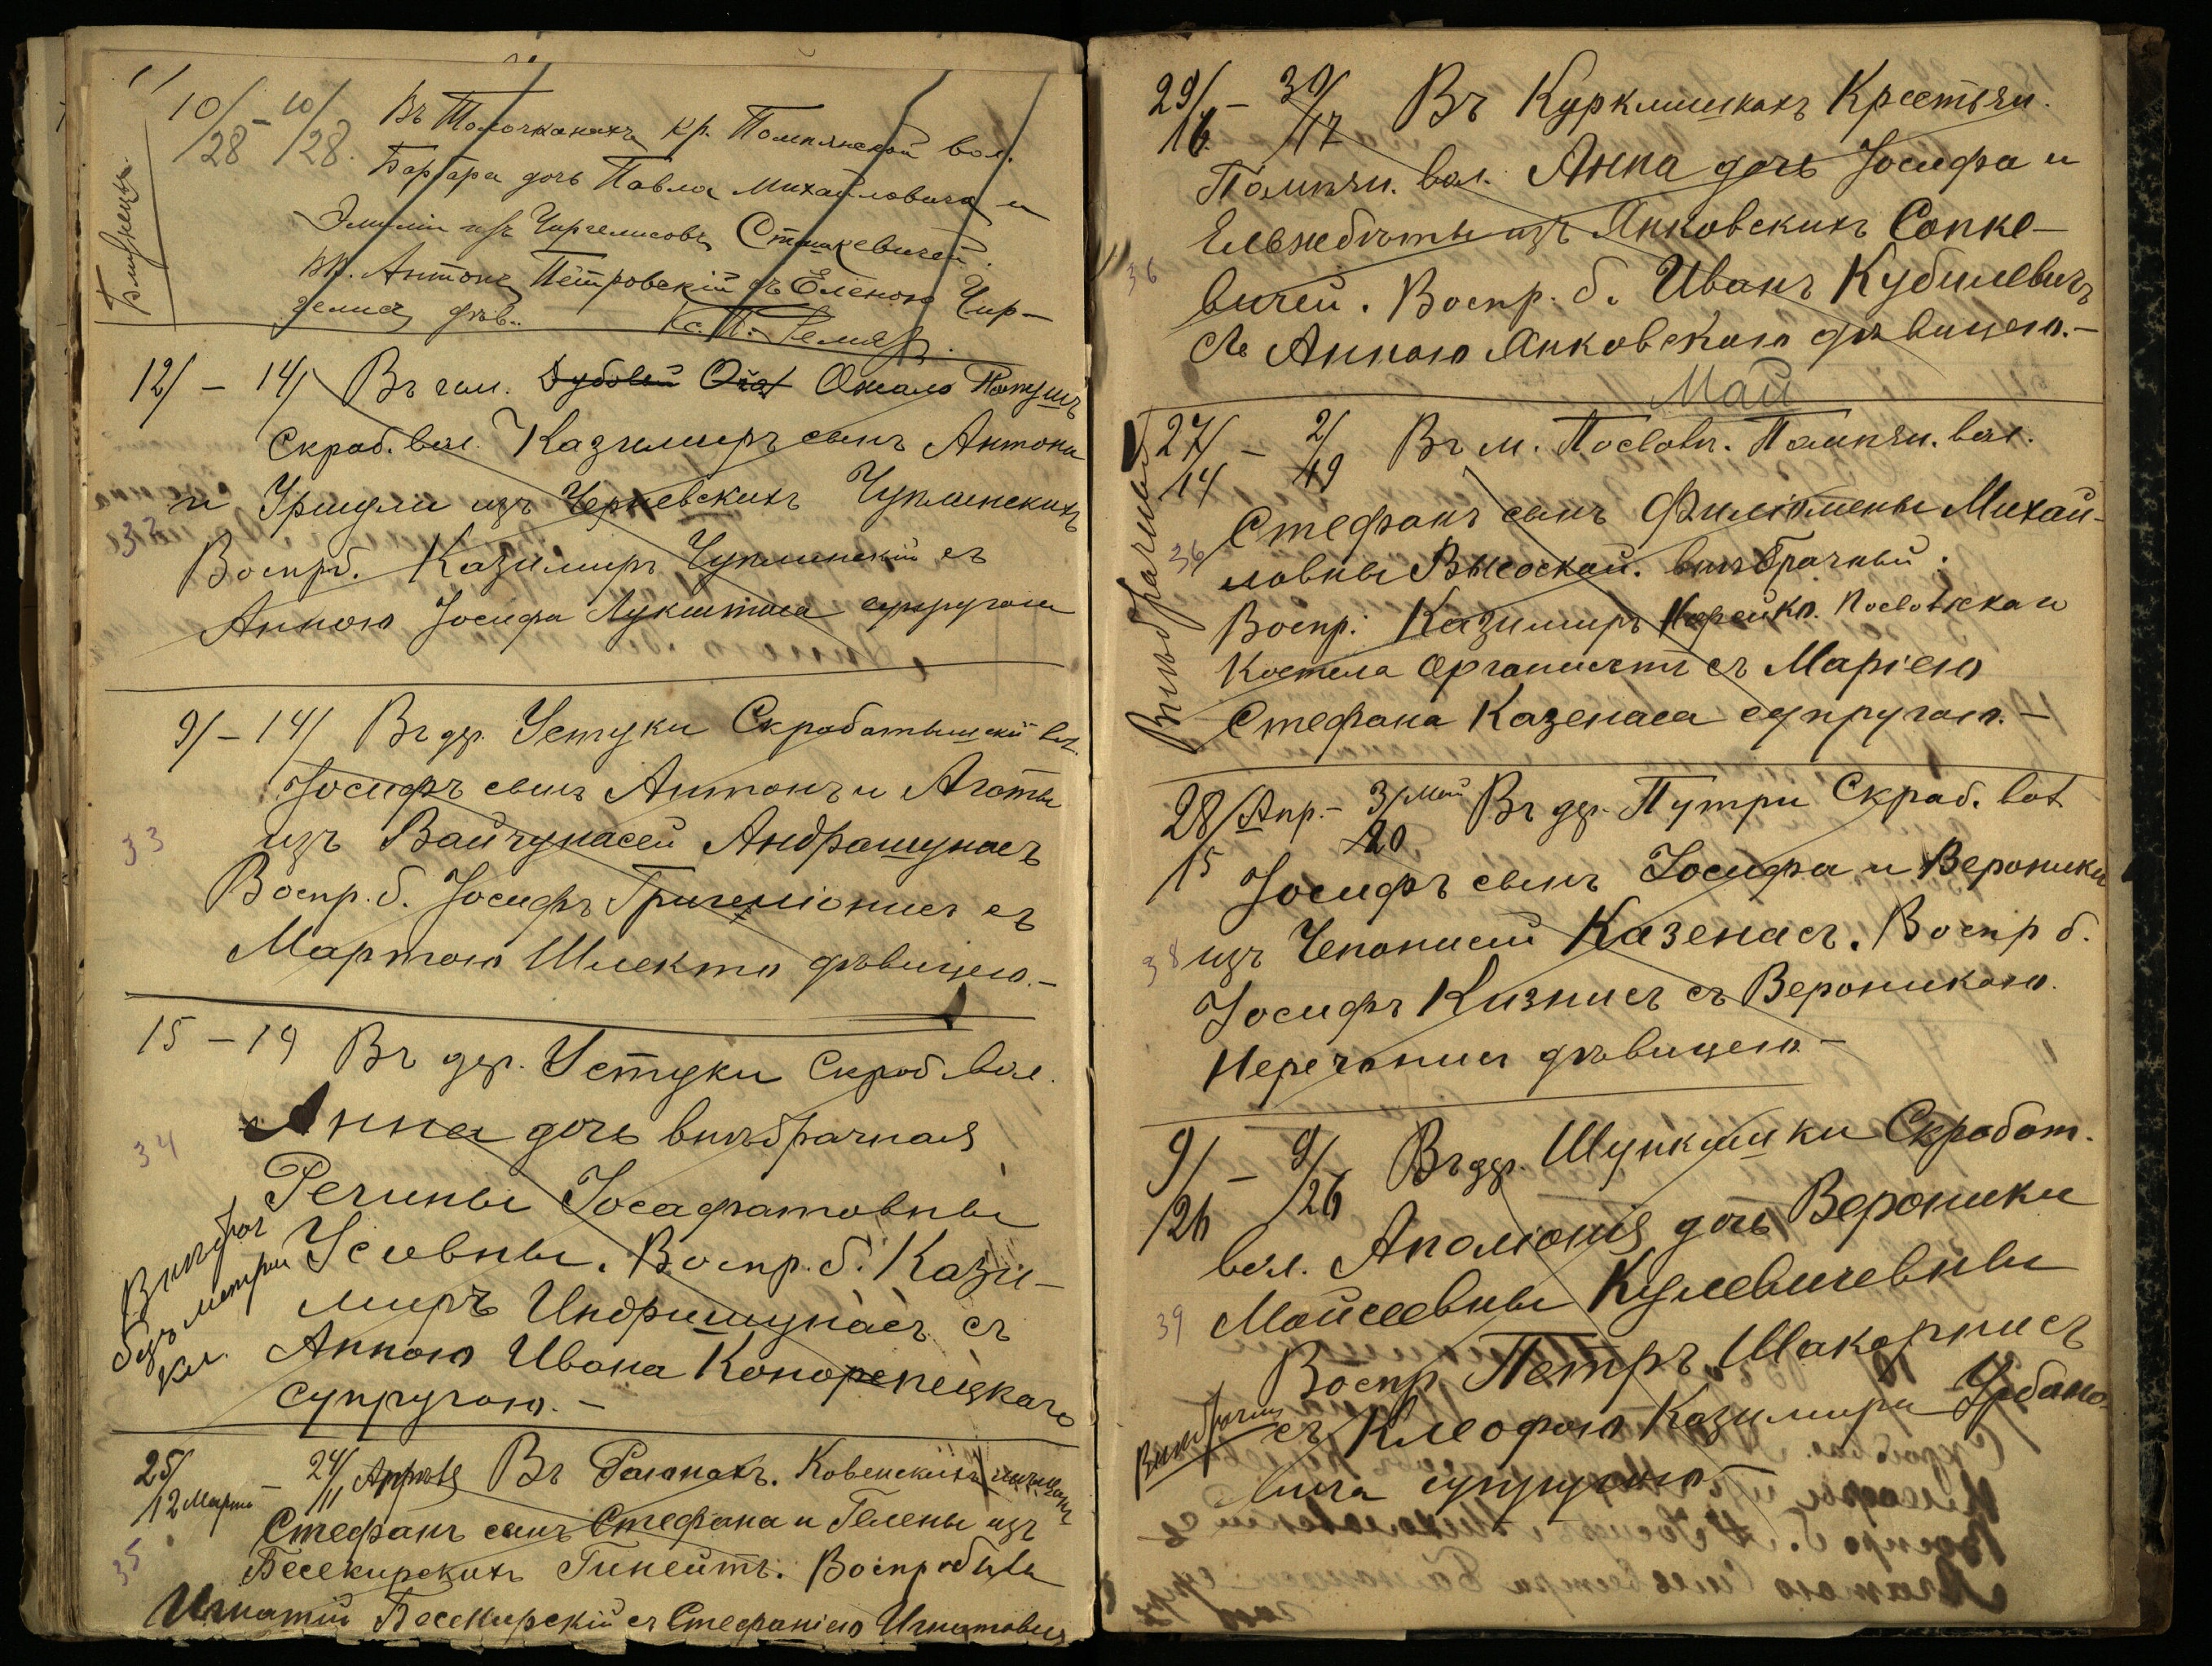 Близнецы
10/28 – 10/28. Въ Толочканахъ кр. Помпянской вол.
Барбара дочь Павла Михайловича и
Эмиліи изъ Чиргелисовъ Сташкевичей.
Вп. Антонъ Петровскій съ Еленою Чир-
гелисъ дѣв. Кс. П.
12/ – 14/ Въ им. Ожело
Скроб. вол. Казимиръ сынъ Антона
и Уршули изъ Черневскихъ Чуплинскихъ
32
Воспр б. Казимиръ Чуплинскій съ
Анною Іосифа Лукштаса супругою
9/ – 14/ Въ др. Устуки Скробатышской вол.
Іосифъ сынъ Антонъ и Агаты
33 изъ Вайчунасей Андрашунасъ
Воспр. б. Іосифъ Григеліонисъ съ
Мартою Шлекта дѣвицею.–
15 – 19 Въ др. Устуки Скроб. вол.
Анна дочь внѣбрачная
34
Регины Іосафатовны
Внѣбрач
безъ метри
кл.
Усовны. Воспр. б. Кази-
миръ Индришунасъ съ
Анною Ивана Конопецкаго
супругою.–
25/12 Марта – 24/11 Апрѣля Въ Роганахъ. Ковенскихъ мѣщанъ
Стефанъ сынъ Стефана и Гелены изъ
35 Бесекирскихъ Гинейтъ. Воспр были
Игнатій Бесекирскій съ Стефаніею Игнатовичъ
29/16 – 30/17 Въ Курклишкахъ Крестьян.
Помпян. вол. Анна дочь Іосифа и
Ельжбѣты изъ Янковскихъ Сопко-
36
вичей. Воспр. б. Иванъ Кубилевичъ
съ Анною Янковскою дѣвицею.–
Май
Внѣбрачный
27/14 – 2/19 Въ м. Посволь. Помпян. вол.
Стефанъ сынъ Филомены Михай-
36 ловны Высоской. внѣбрачный.
Воспр. Казимиръ Нарейко. Посвольскаго
Костела органистъ съ Маріею
Стефана Казенаса супругою.–
28/15 Апр.– 3/20 Май Въ др. Путри Скроб. вол
Іосифъ сынъ Іосифа и Вероники
38 изъ Чепонисей Казенасъ. Воспр б.
Іосифъ Кизнисъ съ Вероникою
Нерегонисъ дѣвицею.–
9/26 – 9/26 Въ др. Шункишки Скробот.
вол. Аполонія дочь Вероники
39 Мойсеевны Кулевичевны
Воспр Петръ Шакорнисъ
Внѣбрачны
съ Клеофою Казимира Урбано-
вича супругою.–